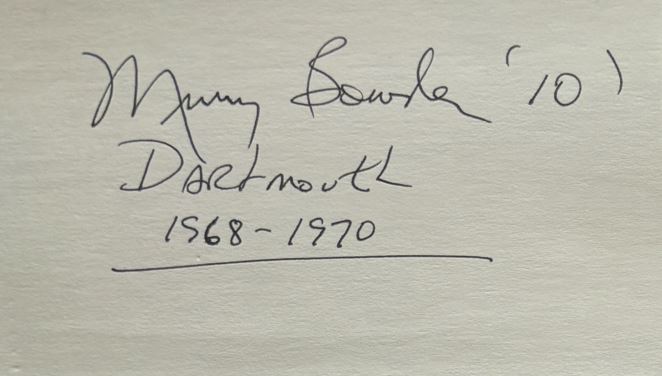 Murry Bowden '10)
Dartmouth
1968-1970